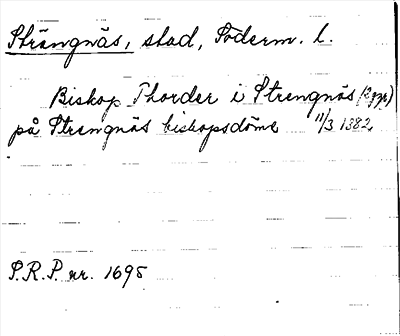 Strängnäs, stad, Söderm. l.
Biskop Thorder i Strengnäs (2 ggr)
på Strengnäs biskopsdöme 11/3 1382.
S.R.P. nr. 1695